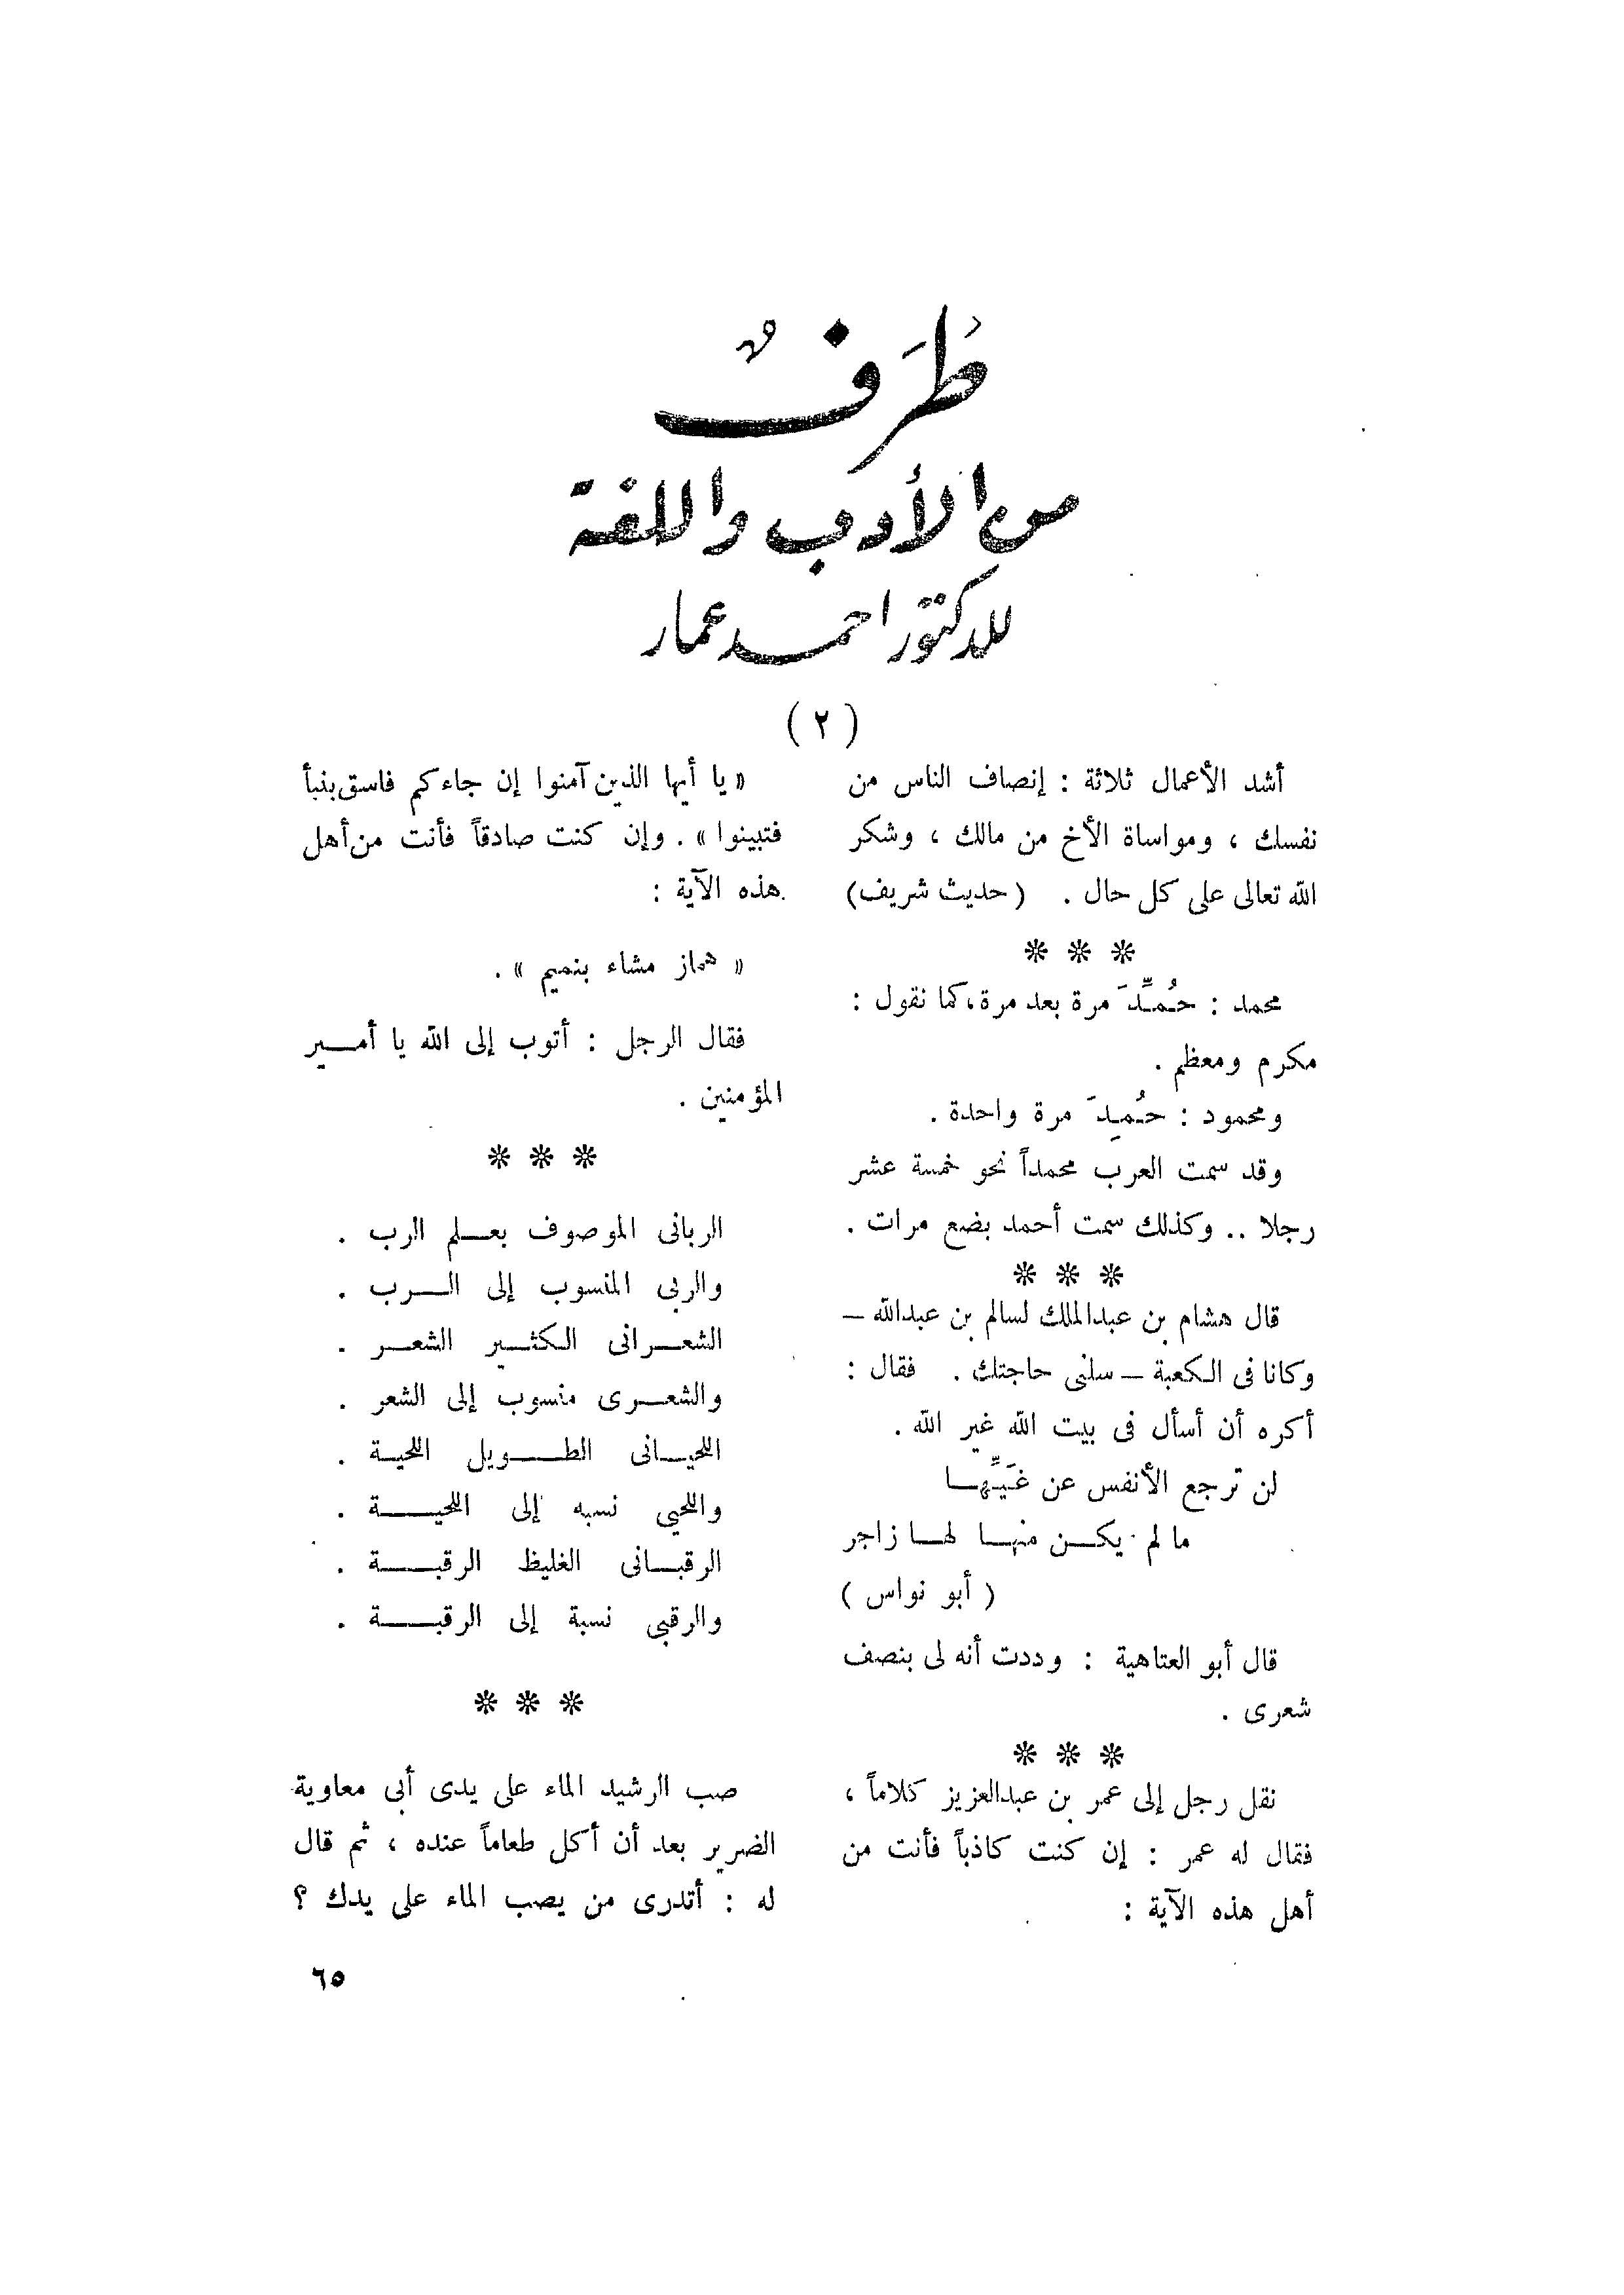 طُرَفٌ
من الأدب واللغة
للدكتور احمد عمار
( ٢ )
أشد الأعمال ثلاثة : إنصاف الناس من
نفسك ، ومواساة الأخ من مالك ، وشكر
الله تعالى على كل حال . ( حديث شريف)
* * *
محمد : حُمِّدَ مرة بعد مرة، كما نقول :
مكرم ومعظم .
ومحمود : حُمِدَ مرة واحدة .
وقد سمت العرب محمداً نحو خمسة عشر
رجلا .. وكذلك سمت أحمد بضع مرات .
* * *
قال هشام بن عبدالملك لسالم بن عبدالله –
وكانا فى الكعبة – سلنى حاجتك . فقال :
أكره أن أسأل فى بيت الله غير الله .
لن ترجع الأنفس عن غَيِّها
ما لم يكن منها لها زاجر
( أبو نواس )
قال أبو العتاهية : وددت أنه لى بنصف
شعرى .
* * *
نقل رجل إلى عمر بن عبدالعزيز كلاماً ،
فقال له عمر : إن كنت كاذباً فأنت من
أهل هذه الآية :
« يا أيها الذين آمنوا إن جاءكم فاسق بنبأ
فتبينوا » . وإن كنت صادقاً فأنت من أهل
هذه الآية :
« هماز مشاء بنميم » .
فقال الرجل : أتوب إلى الله يا أمير
المؤمنين .
* * *
الربانى الموصوف بعلم الرب .
والربى المنسوب إلى الرب .
الشعرانى الكثير الشعر .
والشعرى منسوب إلى الشعر .
اللحيانى الطويل اللحية .
واللحيى نسبه إلى اللحية .
الرقبانى الغليظ الرقبة .
والرقبى نسبة إلى الرقبة .
* * *
صب الرشيد الماء على يدى أبى معاوية
الضرير بعد أن أكل طعاماً عنده ، ثم قال
له : أتدرى من يصب الماء على يدك ؟
٦٥